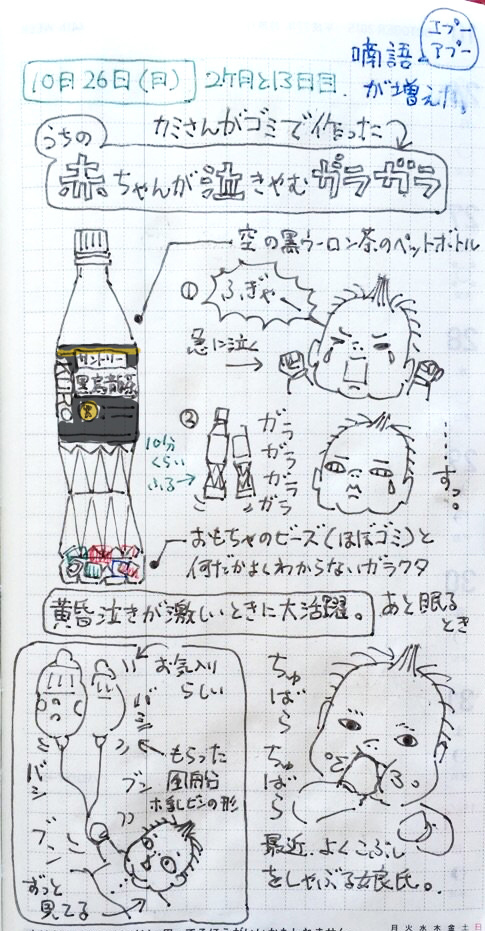 エプー
アプー
喃語
が増えた。
10月26日(月) 2ケ月と13日目.
カミさんがゴミで作った
うちの
赤ちゃんが泣きやむガラガラ
空の黒ウーロン茶のペットボトル
① ふぎゃー
急に泣く
サントリー
黒烏龍茶
KURO
黒
②
10分
くらい
ふる
ガラ
ガラ
ガラ
ガラ
……すっ。
おもちゃのビーズ(ほぼゴミ)と
何だかよくわからないガラクタ
黄昏泣きが激しいときに大活躍。
あと眠る
とき
お気入り
らしい
バシ
ブン
バシ
ブン
もらった
風船
ホ乳ビンの形
ずっと
見てる
ちゅ
ばら
ちゅ
ばら
最近よくこぶし
をしゃぶる娘氏。
月火水木金土日